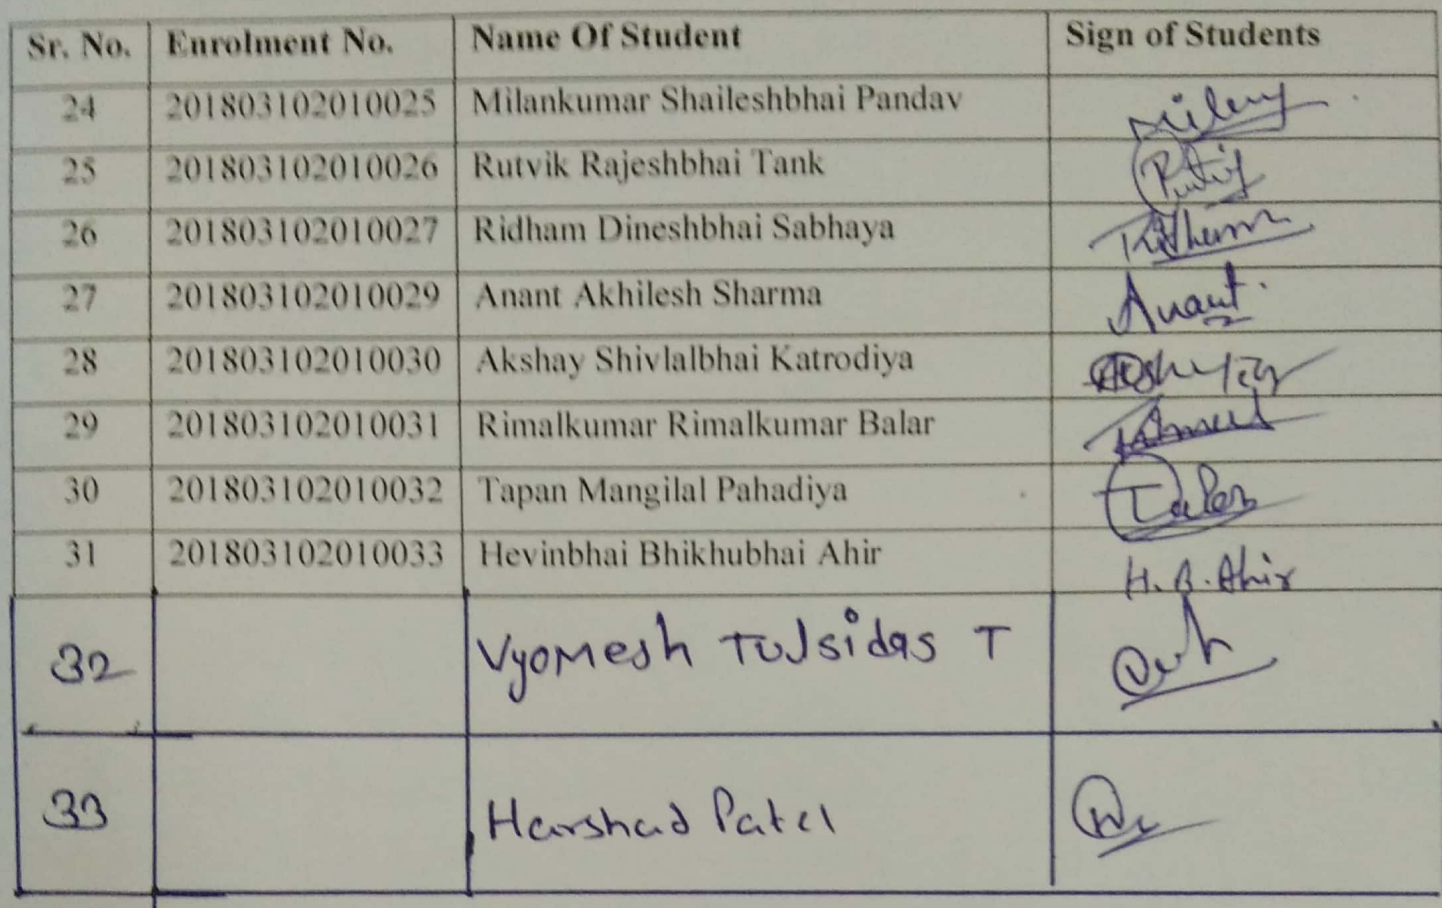 Sr. No. Enrolment No. Name Of Student Sign of Students
24 201803102010025 Milankumar Shaileshbhai Pandav
25 201803102010026 Rutvik Rajeshbhai Tank
26 201803102010027 Ridham Dineshbhai Sabhaya Ridham
27 201803102010029 Anant Akhilesh Sharma Anant
28 201803102010030 Akshay Shivlalbhai Katrodiya
29 201803102010031 Rimalkumar Rimalkumar Balar
30 201803102010032 Tapan Mangilal Pahadiya
31 201803102010033 Hevinbhai Bhikhubhai Ahir H.B.Ahir
32 Vyomesh Tulsidas T
33 Harshad Patel